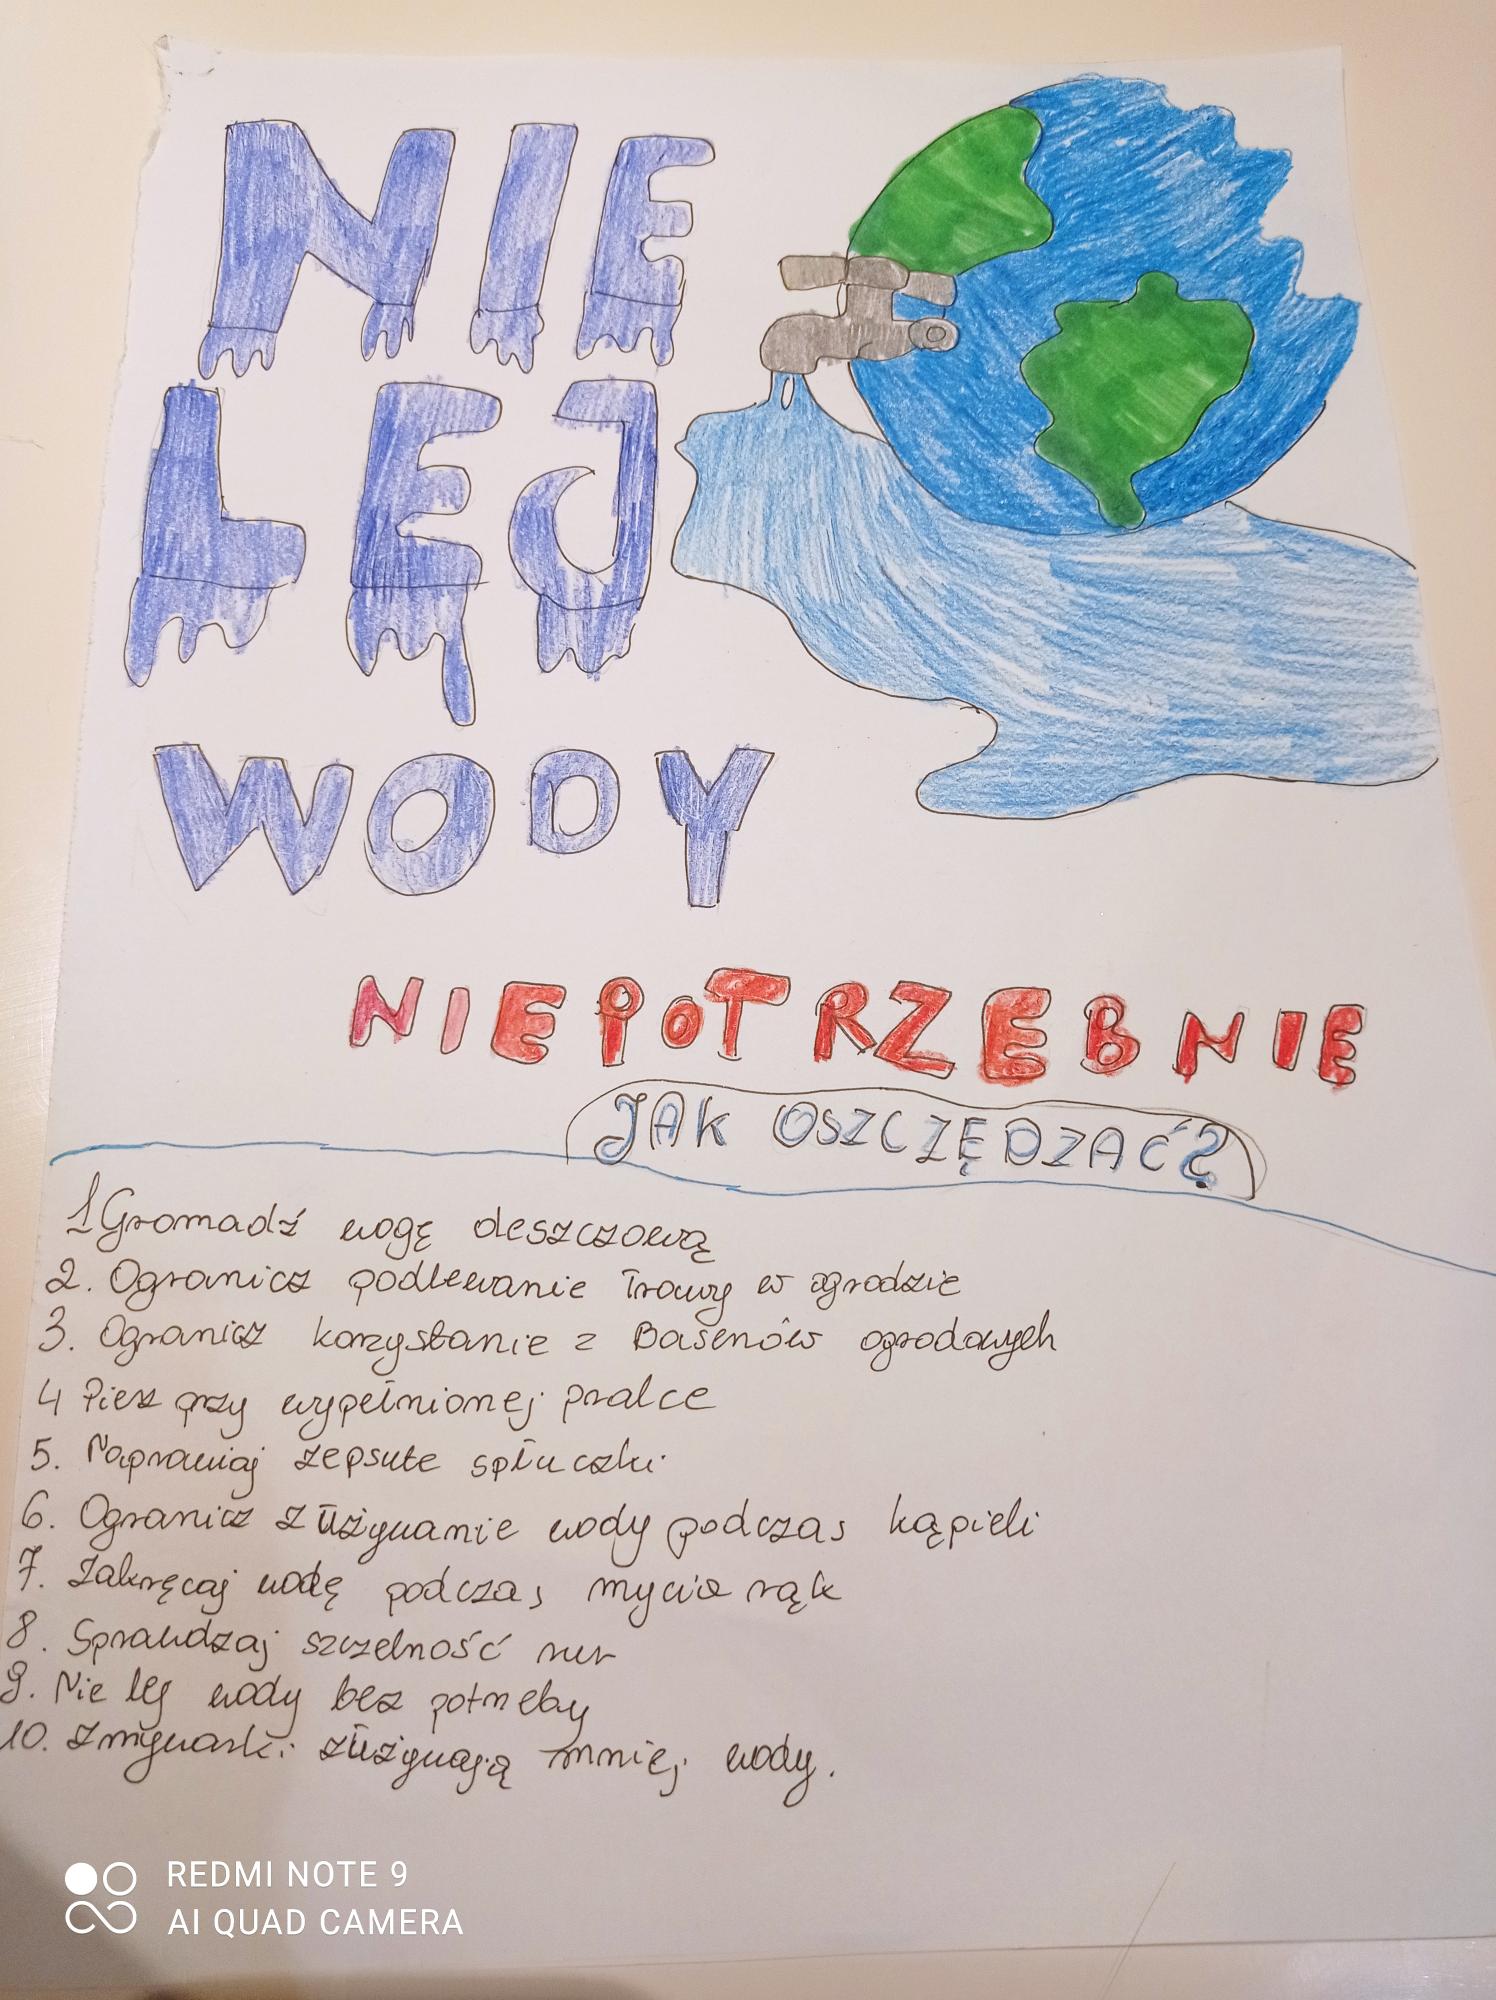 NIE
LEJ
WODY
NIEPOTRZEBNIE
JAK OSZCZĘDZAĆ?
1 Gromadź wogę deszczową
2. Ogranicz podlewanie trawy w ogrodzie
3. Ogranicz korzystanie z Basenów ogrodowych
4 Pierz przy wypełnionej pralce
5. Naprawiaj zepsute spłuczki
6. Ogranicz zużywanie wody podczas kąpieli
7. Zakręcaj wodę podczas mycia rąk
8. Sprawdzaj szczelność rur
9. Nie lej wody bez potrzeby
10. Zmywarki zużywają mniej wody.
REDMI NOTE 9
AI QUAD CAMERA